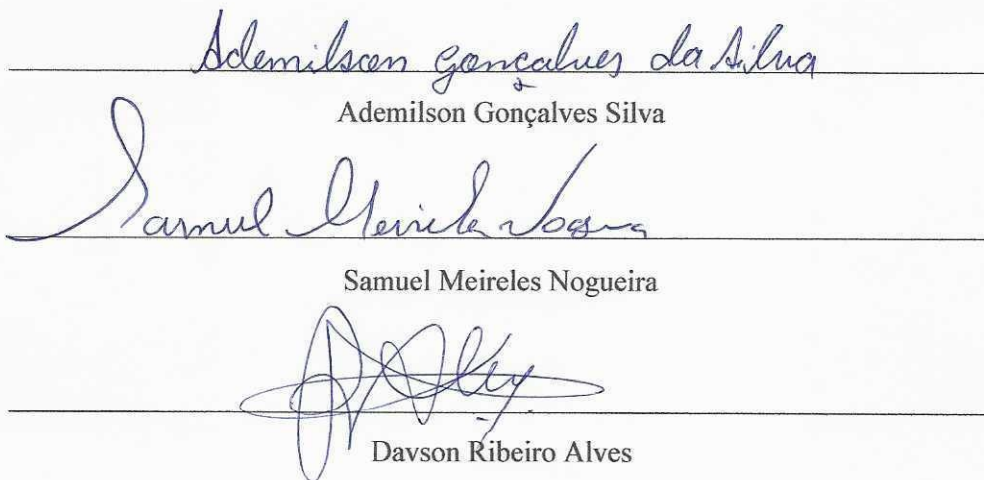 Ademilson Gonçalves da Silva
Ademilson Gonçalves Silva
Samuel Meireles Nogueira
Davson Ribeiro Alves